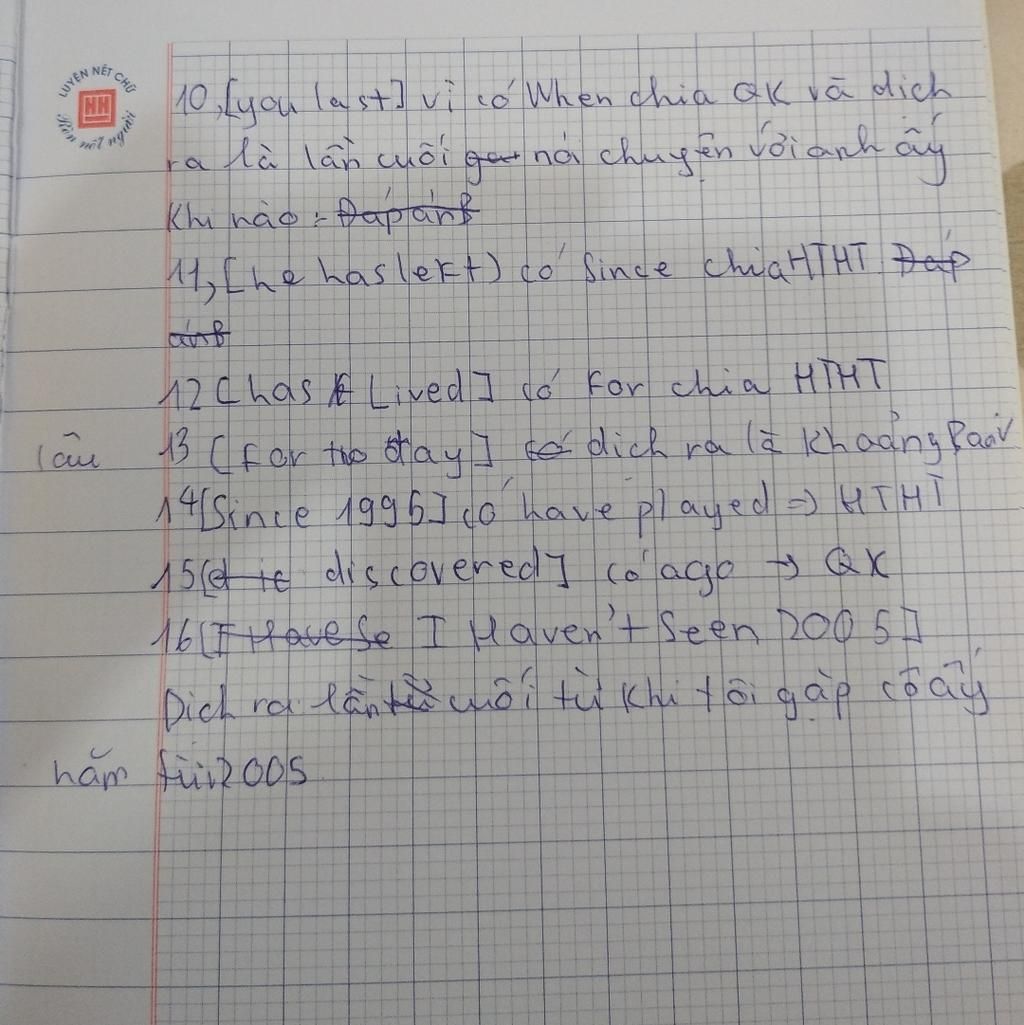 LUYỆN NÉT CHỮ
HH
Rèn nết người
10, [you last] vì có When chia QK và dịch
ra là lần cuối nói chuyện với anh ấy
Khi nào :
11, [he has left) có Since chia HTHT
12 [has Lived] có For chia HTHT
13 [For to day] dịch ra là khoảng
lâu
14 [Since 1995] có have played => HTHT
15 [discovered] có ago → QK
16 [I Haven't Seen 2005]
Dịch ra lần cuối từ khi tôi gặp cô ấy
năm 2005